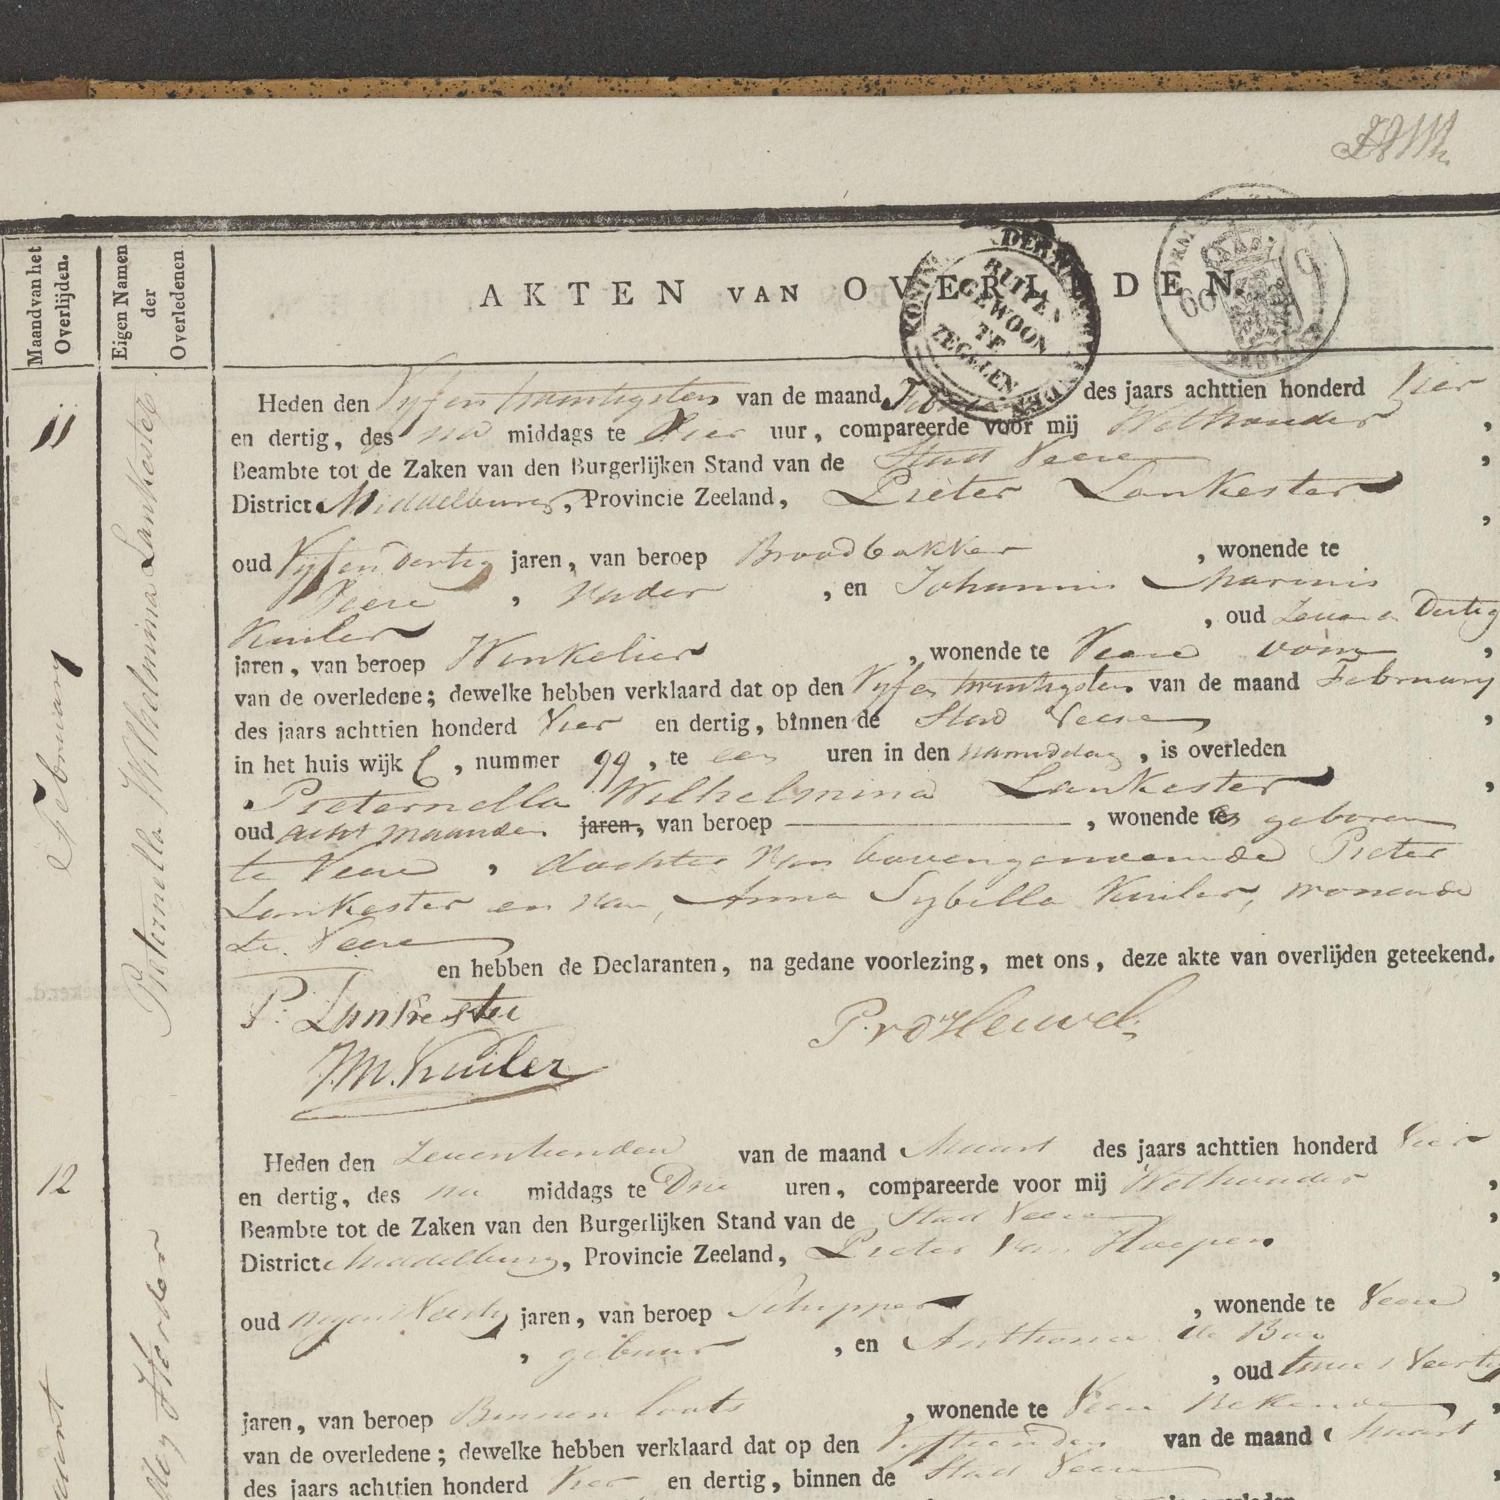 Maand van het
Overlijden.
Eigen Namen
der
Overledenen
AKTEN VAN OVERLIJDEN.
BUITEN
GEWOON
TE
ZEGELEN
11
February
Pieternella Wilhelmina Lankester
Heden den Vyfentwintigsten van de maand Febru des jaars achttien honderd Vier
en dertig, des na middags te Vier uur, compareerde voor mij Wethouder,
Beambte tot de Zaken van den Burgerlijken Stand van de Stad Veere,
District Middelburg, Provincie Zeeland, Pieter Lankester,
oud Vyfendertig jaren, van beroep Broodbakker, wonende te
Veere, Vader, en Johannis Marinis
Kuiler, oud Zeven en Dertig
jaren, van beroep Winkelier, wonende te Veere oom,
van de overledene; dewelke hebben verklaard dat op den Vyfentwintigsten van de maand February
des jaars achttien honderd Vier en dertig, binnen de Stad Veere,
in het huis wijk C, nummer 99, te een uren in den namiddag, is overleden
Pieternella Wilhelmina Lankester,
oud acht maanden jaren, van beroep, wonende te geboren
te Veere, dochter van bovengenoemde Pieter
Lankester en van Anna Sybilla Kuiler, wonende
te Veere
en hebben de Declaranten, na gedane voorlezing, met ons, deze akte van overlijden geteekend.
P. Lankester
J.M. Kuiler
12
Maart
Heden den Zeventienden van de maand Maart des jaars achttien honderd Vier
en dertig, des na middags te Drie uren, compareerde voor mij Wethouder,
Beambte tot de Zaken van den Burgerlijken Stand van de Stad Veere,
District Middelburg, Provincie Zeeland, Pieter Van Hoepen,
oud negen Veertig jaren, van beroep Schipper, wonende te Veere
, gebuur, en Anthonie de
, oud twee Veertig
jaren, van beroep Binnen loots, wonende te Veere Bekende,
van de overledene; dewelke hebben verklaard dat op den Vyftienden van de maand Maart
des jaars achttien honderd Vier en dertig, binnen de Stad Veere,